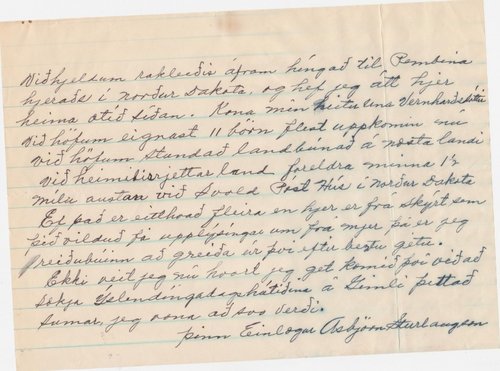 Við hjeldum rakleiðis áfram hingað til Pembina
hjeraðs í Norður Dakota, og hef jeg átt hjer
heima ætíð síðan. Kona mín heitir Una Vernharðsdóttir
við höfum eignast 11 börn flest uppkomin nú
við höfum stundað landbúnað á næsta landi
við heimilisrjettarland foreldra minna 1½
mílu austan við Svold Post Hús í Norður Dakota
Ef það er eitthvað fleira en hjer er frá skýrt sem
þið vilduð fá upplýsingar um frá mjer þá er jeg
reiðubuinn að greiða úr því eftir bestu getu.
Ekki veit jeg nú hvort jeg get komið því við að
sækja Íslendingadagshátíðina á Gimli þettað
sumar, jeg vona að svo verði.
þinn Einlægur Asbjörn Sturlaugson